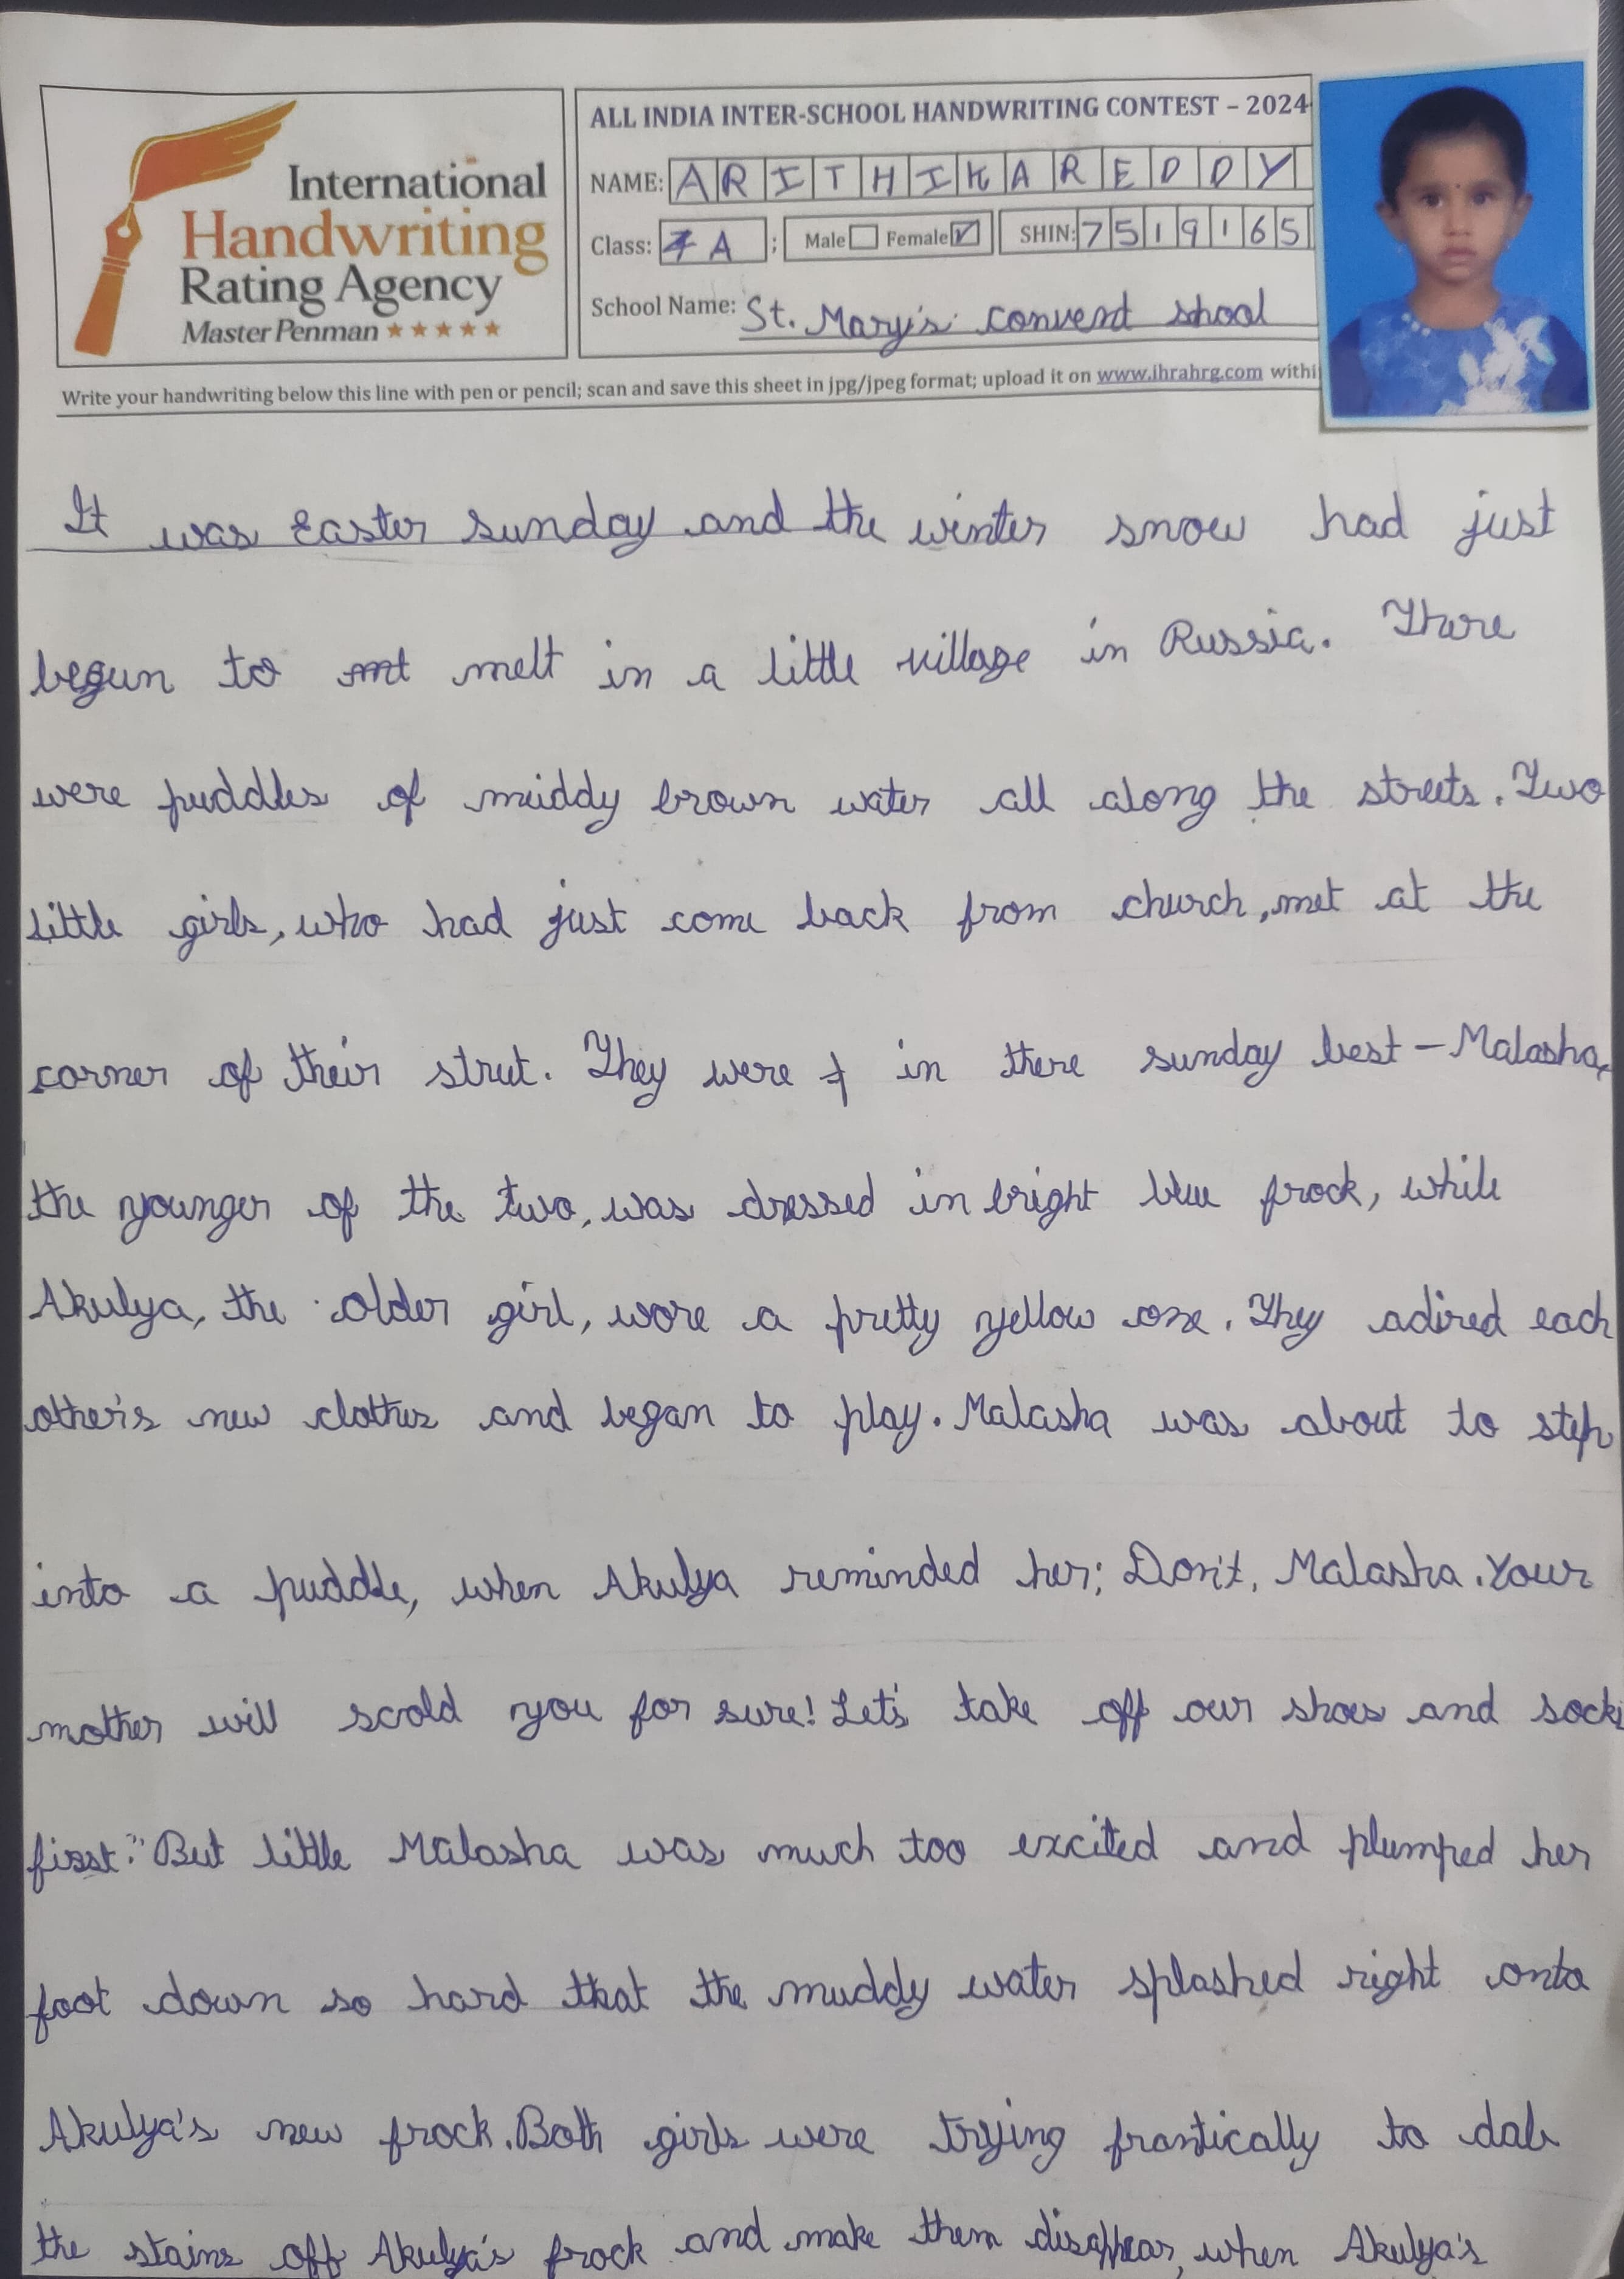 International
Handwriting
Rating Agency
Master Penman ★★★★★
ALL INDIA INTER-SCHOOL HANDWRITING CONTEST – 2024
NAME: ARITHIKAREDDY
Class: 7 A ; Male Female ✓ SHIN: 7519165
School Name: St. Mary's convent shool
Write your handwriting below this line with pen or pencil; scan and save this sheet in jpg/jpeg format; upload it on www.ihrahrg.com withi
It was Easter sunday and the winter snow had just
begun to melt in a little village in Russia. There
were puddles of muddy brown water all along the streets. Two
little girls, who had just come back from church, met at the
corner of their street. They were in there sunday best – Malasha,
the younger of the two, was dressed in bright blue frock, while
Akulya, the older girl, wore a pretty yellow one. They adired each
other's new clothes and began to play. Malasha was about to step
into a puddle, when Akulya reminded her; Don't, Malasha. Your
mother will scold you for sure! Let's take off our shoes and socks
first." But little Malasha was much too excited and plumped her
foot down so hard that the muddy water splashed right onto
Akulya's new frock. Both girls were trying frantically to dab
the stains off Akulya's frock and make them disappear, when Akulya's